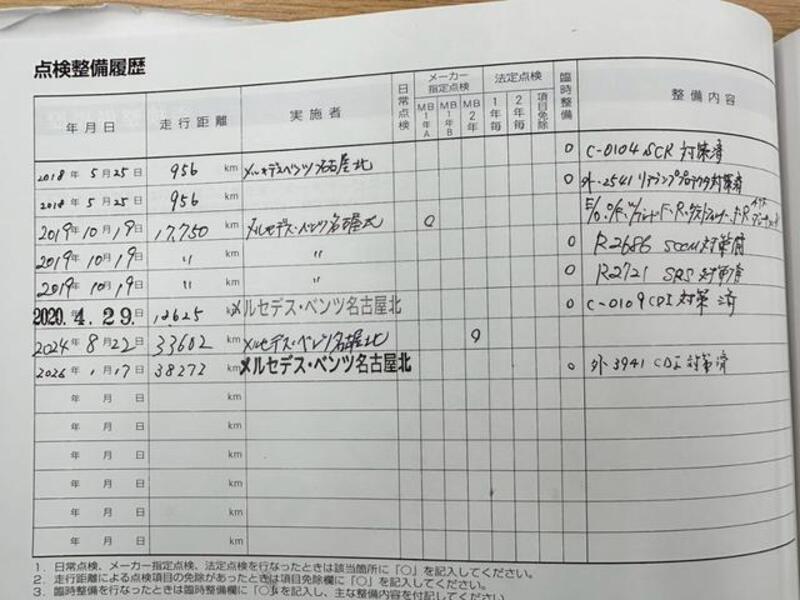 点検整備履歴
年月日 走行距離 実施者 日常点検 メーカー指定点検 MB1年A MB1年B MB2年 法定点検 1年毎 2年毎 項目免除 臨時整備 整備内容
2018年5月25日 956km メルセデスベンツ名古屋北 ○ C-0104 SCR 対策済
2018年5月25日 956km ○ 外-2541 リアランププロテクタ対策済
2019年10月19日 17,750km メルセデス・ベンツ名古屋北 ○ E/O. O/F.
2019年10月19日 〃km 〃 ○ R2686 SCCM対策済
2019年10月19日 〃km 〃 ○ R2721 SRS対策済
2020.年4.29.日 12625km メルセデス・ベンツ名古屋北 ○ C-0109 CDI 対策 済
2024年8月22日 33602km メルセデス・ベンツ名古屋北 ○
2026年1月17日 38272km メルセデス・ベンツ名古屋北 ○ 外-3941 CDI 対策済
年月日 km
年月日 km
年月日 km
年月日 km
年月日 km
年月日 km
1. 日常点検、メーカー指定点検、法定点検を行なったときは該当箇所に「○」を記入してください。
2. 走行距離による点検項目の免除があったときは項目免除欄に「○」を記入してください。
3. 臨時整備を行なったときは臨時整備欄に「○」を記入し、主な整備内容を付記してください。